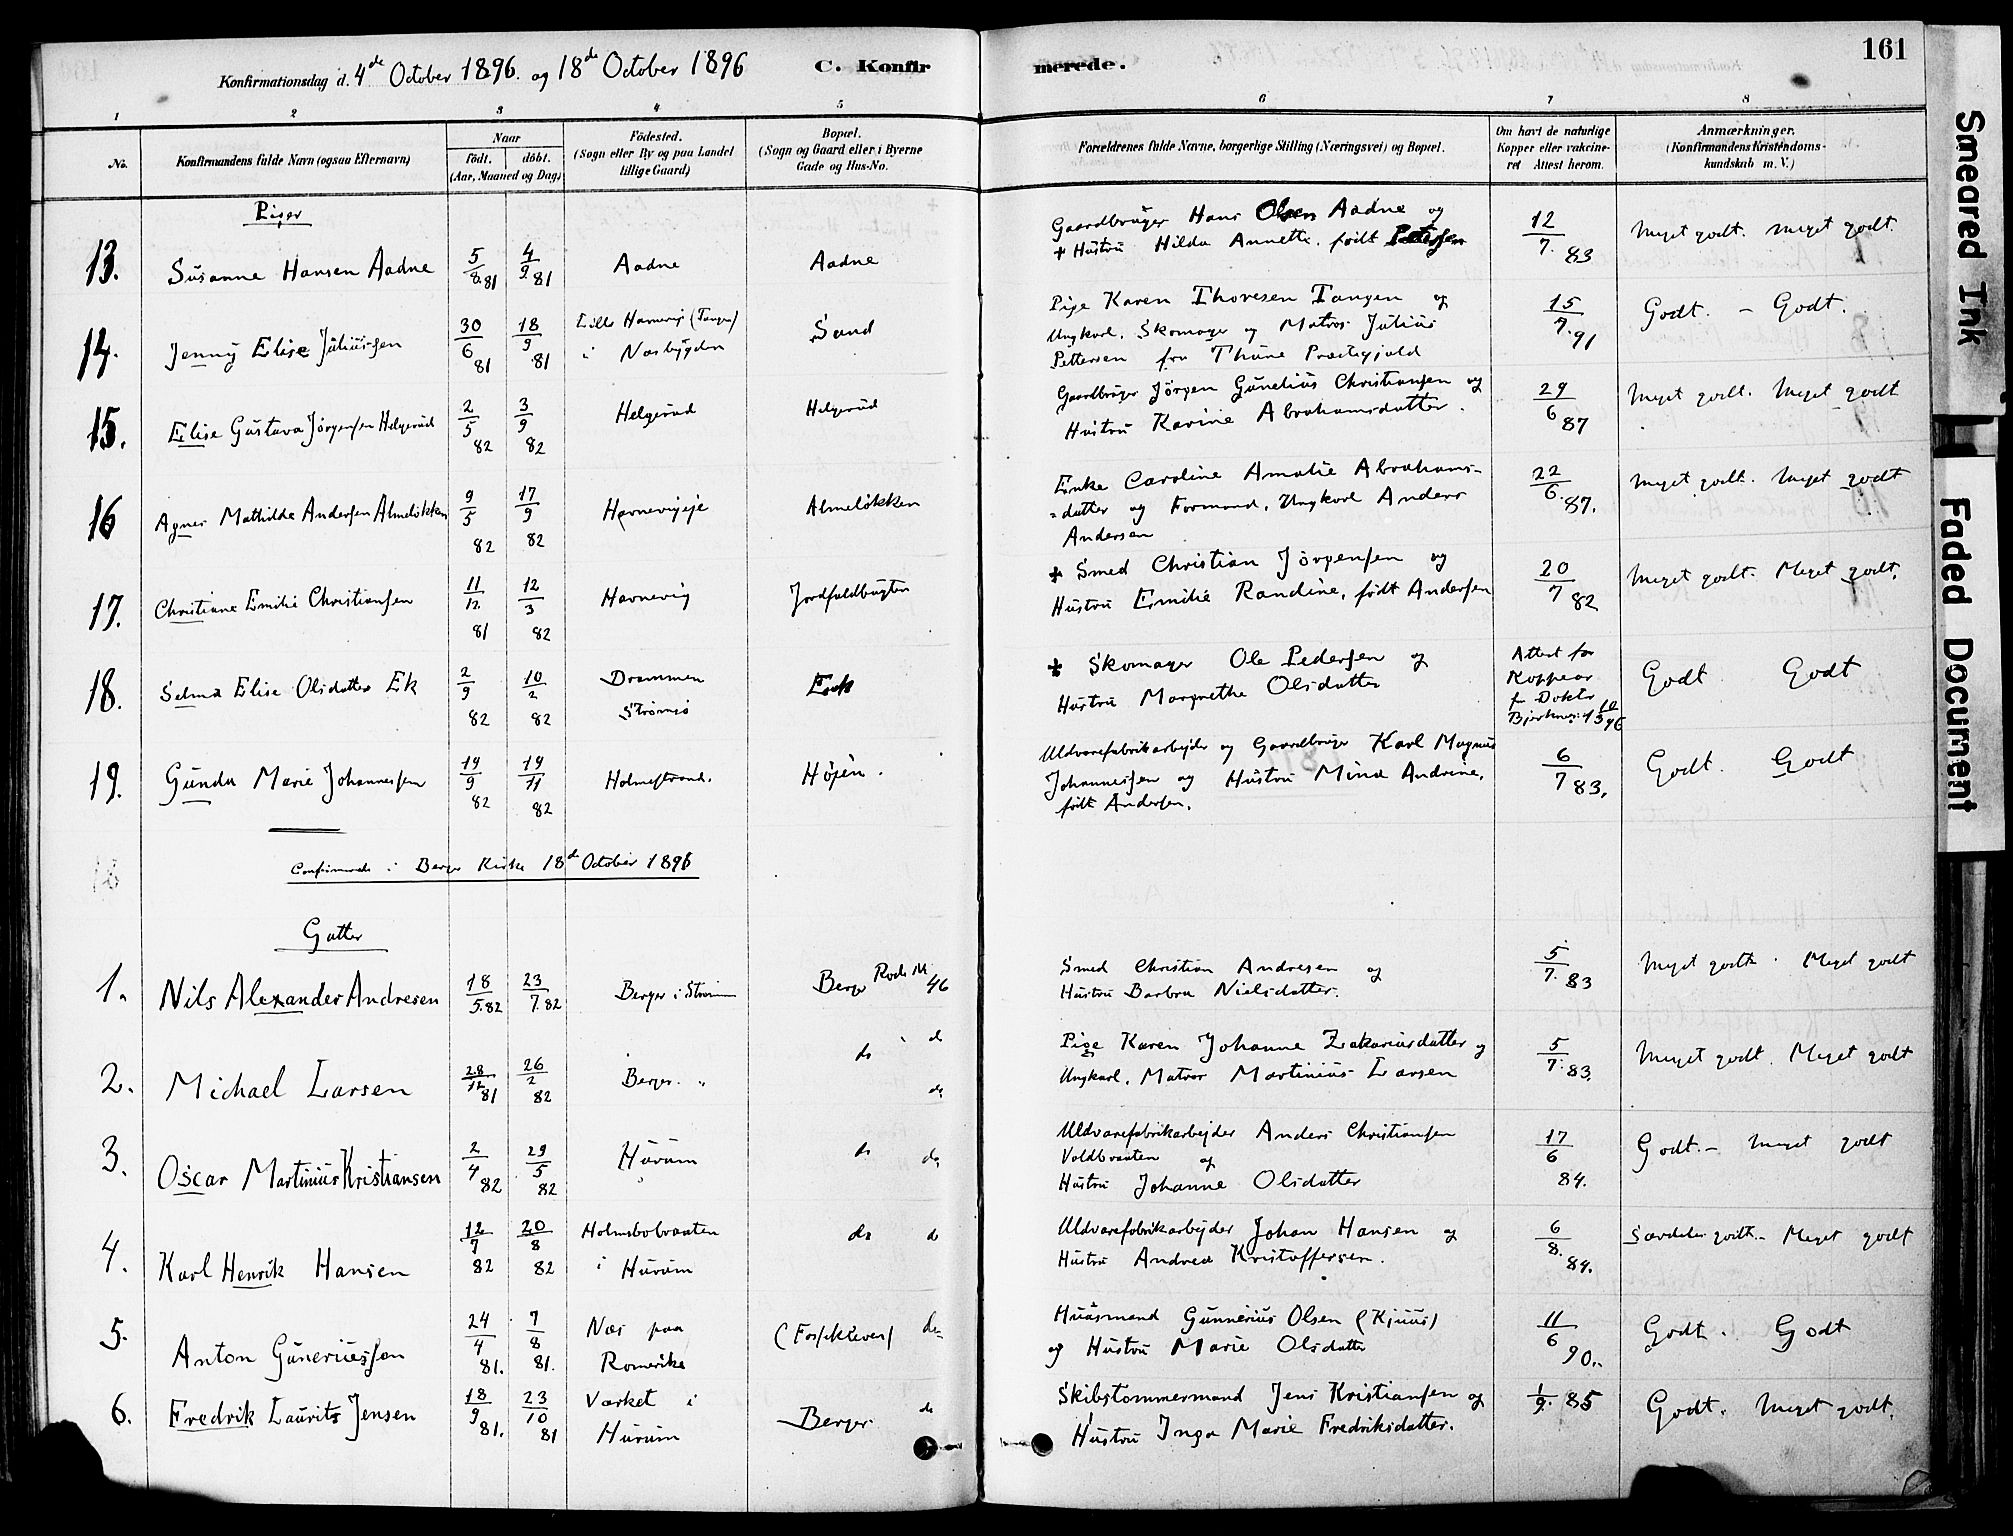 161
Konfirmationsdag d. 4de October 1896. og 18de October 1896
C. Konfirmerede.
1 2 3 4 5 6 7 8
No.
Konfirmandens fulde Navn (ogsaa Efternavn)
Naar
födt. döbt.
(Aar, Maaned og Dag)
Födested.
(Sogn eller By og paa Landet
tillige Gaard)
Bopæl.
(Sogn og Gaard eller i Byerne
Gade og Hus-No.
Forældrenes fulde Navne, borgerlige Stilling (Næringsvei) og Bopæl.
Om havt de naturlige
Kopper eller vakcineret
Attest herom.
Anmærkninger.
(Konfirmandens Kristendomskundskab
m. V.)
Piger
13. Susanne Hansen Aadne 5/8 81 4/9 81 Aadne Aadne
Gaardbruger Hans Olsen Aadne og
+ Hustru Hilda Annette, født Petersen
12/7 83 Meget godt. meget godt.
14. Jenny Elise Juliussen 30/6 81 18/9 81 Lille Havnevig (Tangen)
i Næsbygden Sand
Pige Karen Thoresen Tangen og
Ungkarl, Skomager og Matros Julius
Pettersen fra Thune Præstegjæld
15/7 91 Godt. - Godt.
15. Elise Gustava Jörgensen Helgerud 2/5 82 3/9 82 Helgerud Helgerud
Gaardbruger Jörgen Gunelius Christiansen og
Hustru Karine Abrahamsdatter.
29/6 87 Meget godt. Meget godt
16 Agnes Mathilde Andersen Almelökken 9/5 82 17/9 82 Havnevigeje Almelökken
Enke Caroline Amalie Abrahams-
=datter og Formand, Ungkarl Anders
Andersen
22/6 87. Meget godt. Meget godt
17. Christiane Emilie Christiansen 11/12 81 12/3 82 Havnevig Jordfaldbugten
+ Smed Christian Jörgensen og
Hustru Emilie Randine, født Andersen
20/7 82 Meget godt. Meget godt.
18. Selma Elise Olsdatter Ek 2/9 82 10/2 82 Drammen
Strømsø Eck
+ Skomager Ole Pedersen og
Hustru Margrethe Olsdatter
Attest for
Kopper
fr Doktor
Godt Godt
19. Gunda Marie Johannessen 19/9 82 19/11 82 Holmestrand. Højen.
Uldvarefabrikarbejder og Gaardbruger Karl Magnus
Johannessen og Hustru Mina Andrine,
født Andersen.
6/7 83. Godt. Godt
Confirmerede i Berger Kirke 18de October 1896
Gutter
1. Nils Alexander Andresen 18/5 82 23/7 82 Berger i Strømm Berger Rode M 46
Smed Christian Andresen og
Hustru Barbra Nielsdatter.
5/7 83 Meget godt. Meget godt
2. Michael Larsen 28/12 81 26/2 82 Berger. " do do
Pige Karen Johanne Zakariasdatter og
Ungkarl, Matros Martinius Larsen
5/7 83. Meget godt. Meget godt
3. Oscar Martinius Kristiansen 2/4 82 29/5 82 Hurum do do
Uldvarefabrikarbejder Anders Christiansen
Voldbraaten og
Hustru Johanne Olsdatter
17/6 84. Godt.- meget godt
4. Karl Henrik Hansen 12/7 82 20/8 82 Holmsbobraaten
i Hurum do do
Uldvarefabrikarbejder Johan Hansen og
Hustru Andrea Kristoffersen.
6/8. 84. Særdeles godt.- Meget godt
5. Anton Guneriussen 24/4 81. 7/8 81. Næs paa
Romerike do
Husmand Gunnerius Olsen (Kjuus)
og Hustru Marie Olsdatter
11/6 90. Godt. Godt
6. Fredrik Laurits Jensen 18/9 81. 23/10 81 Værket i
Hurum Berger do
Skibstømmermand Jens Kristiansen og
Hustru Inga Marie Fredriksdatter.
1/9. 85 Godt. Meget godt.
Smeared Ink
Faded Document